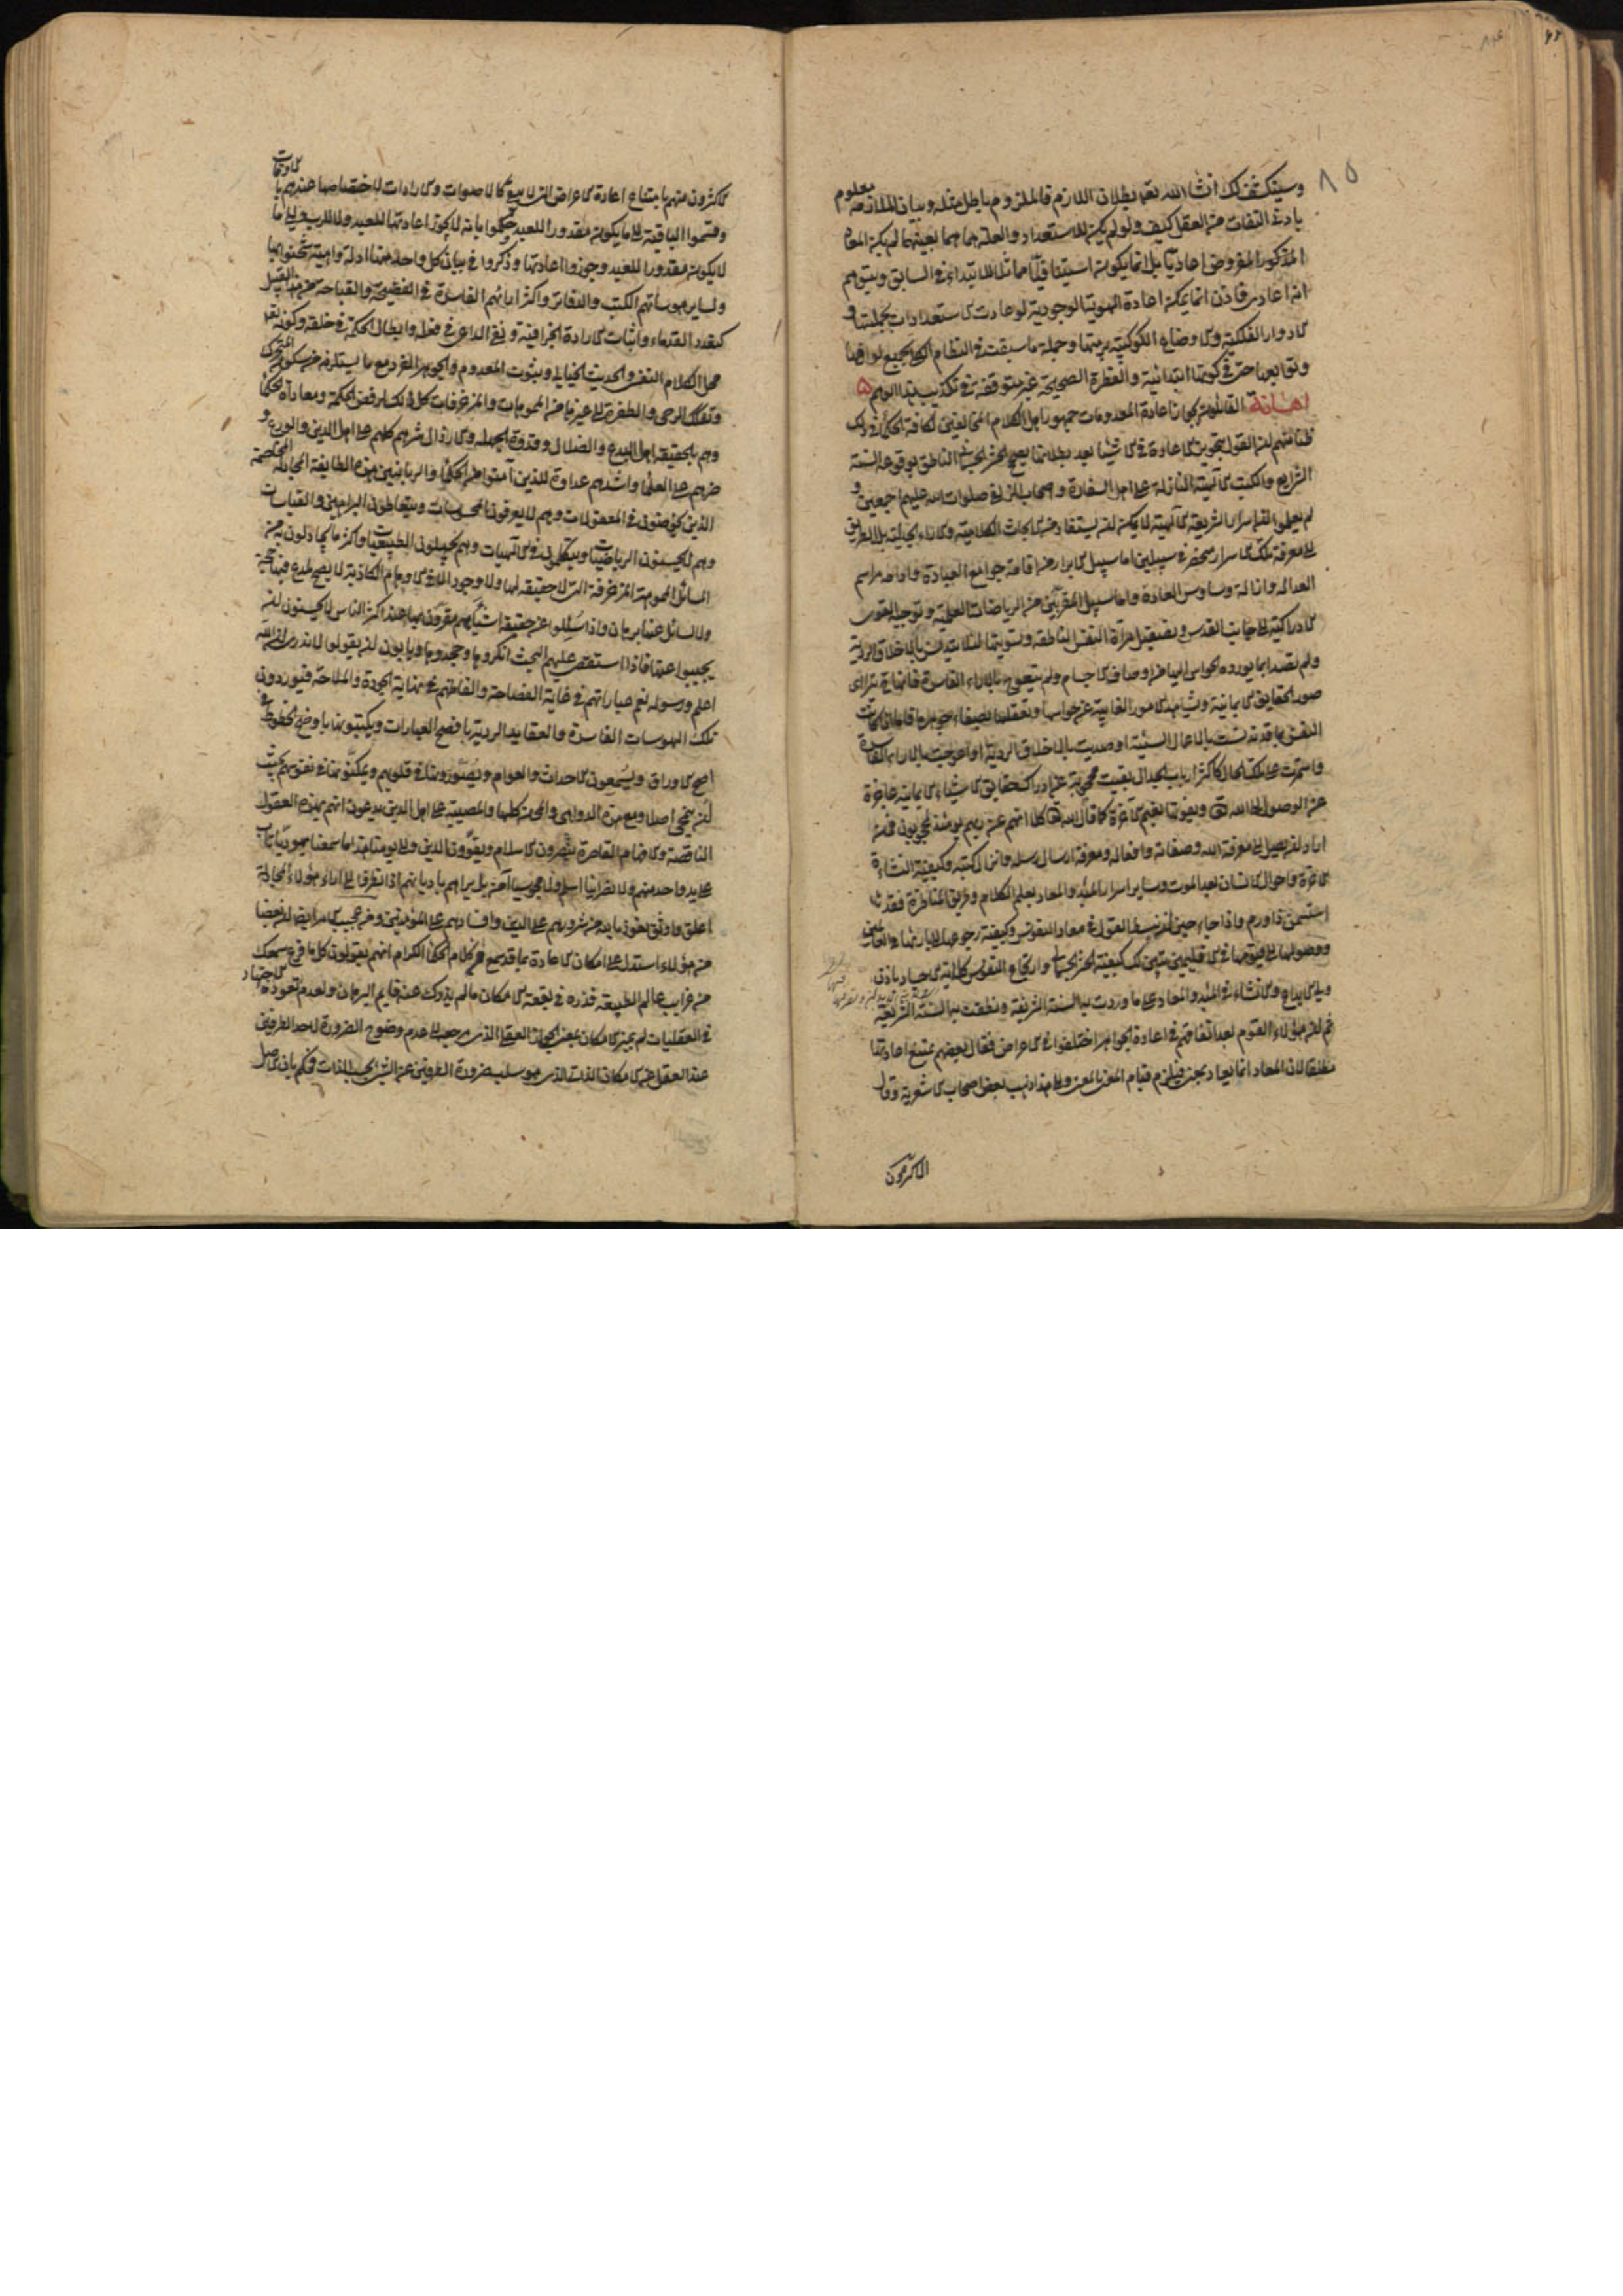 ٨٥
وسينكشف لك انشاء الله تعالى بطلان اللازم فالملزوم باطل مثله وبيان الملازمة معلوم
بادنى التفات من العقل كيف ولو لم يكن للاستعداد والعلة هما هما بعينهما لم يكن المعاد
المذكور المفروض اعاديا بل انما يكون استينافيا مماثلا للابتدائى السابق ويتوهم
انه اعادى فاذن انما يمكن اعادة الهوية الوجودية لو عادت الاستعدادات بجملتها و
الادوار الفلكية والاوضاع الكوكبية برمتها وجملة ما سبقت فى النظام الكلى بجميع لوازمها
وتوابعها حتى فى كونها ابتدائية والفطرة الصحيحة غير متوقفة فى تكذيب هذا الوهم
اهانة القائلون بجواز اعادة المعدومات جمهور اهل الكلام المخالفين لكافة الحكماء فى ذلك
ظنا منهم ان القول بتجويز الاعادة فى الاشياء بعد بطلانها يصحح الحشر الجسمانى الناطق بوقوعه السنة
الشرايع والكتب الالهية النازلة على اهل السفارة واصحاب الزلفة صلوات الله عليهم اجمعين و
لم يعلموا ان اسرار الشريعة الالهية لا يمكن ان يستفاد من الابحاث الكلامية والاراء الجدلية بل الطريق
الى معرفة تلك الاسرار منحصر فى سبيلين اما سبيل الابرار من اقامة جوامع العبادة وادامة مراسم
العدالة وازالة وساوس العادة واما سبيل المقربين من الرياضات العلمية وتوجيه القوى
الادراكية الى جانب القدس وتصقيل مرآة النفس الناطقة وتسويتها لئلا يتدنس بالاخلاق الردية
ولم تصدأ بما يورده الحواس اليها من اوصاف الاجسام ولم يتعوج بالاراء الفاسدة فانها حينئذ يتراءى
صور الحقايق الايمانية وتشاهد الامور الغايبة عن حواسها وتعقلها بصفاء جوهرها فاما اذا كانت
النفس مما قد تدنست بالاعمال السيئة او صديت بالاخلاق الردية او اعوجت بالاراء الفاسدة
واستمرت على تلك الحال كاكثر ارباب الجدال بقيت محجوبة عن ادراك حقايق الاشياء الايمانية عاجزة
عن الوصول الى الله تعالى ويفوتها نعيم الاخرة كما قال الله تعالى كلا انهم عن ربهم يومئذ لمحجوبون فمن
اراد ان يصل الى معرفة الله وصفاته وافعاله ومعرفة ارسال رسله وانزال كتبه وكيفية النشاءة
الاخرة واحوال الانسان بعد الموت وساير اسرار المبدء والمعاد بعلم الكلام وطريق المناظرة فقد
استسمن ذا ورم واذا جاء حين ان نبسط القول فى معاد النفوس وكيفية رجوعها الى بارئها فى العالمين
ووصولها الى قيومها فى الاقليمين نبين لك كيفية الحشر الجسمانى وارتجاع النفوس كلاتها الاجساد باذن
ولى الابداع والانشاء فى المبدء والمعاد على ما وردت به السنة الشريفة ونطقت به السنة الشريعة
ثم ان هؤلاء القوم بعد اتفاقهم فى اعادة الجواهر اختلفوا فى الاعراض فقال بعضهم يمتنع اعادتها
مطلقا لان المعاد انما يعاد بمعنى فيلزم قيام المعنى بالمعنى والى هذا ذهب بعض اصحاب الاشعرية وقال
الاكثرون
الاكثرون منهم بامتناع اعادة الاعراض التى لا تبقى كالاصوات والارادات لاختصاصها عندهم بالاوقات
وقسموا الباقية الى ما يكون مقدورا للعبد وحكموا بانه لا يجوز اعادتها للعبد ولا للرب والى ما
لا يكون مقدورا للعبد وجوزوا اعادتها وذكروا فى بيان كل واحد منها ادلة واهية شحنوا بها
وبساير هوساتهم الكتب والدفاتر واكثر ارائهم الفاسدة فى الفضيحة والقباحة من هذا القبيل
كتعدد القدماء واثبات الارادة الجزافية ونفى الداعى فى فعله وابطال الحكمة فى خلقه وكونه تعالى
محل الكلام النفسى والحديث الخيالى وثبوت المعدوم والجوهر الفرد مع ما يستلزمه من سكون المتحرك
وتفكك الرحى والطفرة الى غيرها من المموهات والمزخرفات كل ذلك لرفض الحكمة ومعاداة الحكماء
وهم بالحقيقة اهل البدع والضلال وقدوة الجهلة والارذال شرهم كلهم على اهل الدين والورع و
ضرهم على العلماء واشدهم عداوة للذين امنوا من الحكماء والربانيين هذه الطايفة المجادلة المخاصمة
الذين يخوضون فى المعقولات وهم لا يعرفون المحسوسات ويتعاطون البراهين والقياسات
وهم لا يحسنون الرياضيات ويتكلمون فى الالهيات وهم يجهلون الطبيعيات واكثر ما يجادلون به من
المسائل المموهة المزخرفة التى لا حقيقة لها ولا وجود الا فى الاوهام الكاذبة لا يصح لمدع فيها حجة
ولا لسائل عنها برهان واذا سئلوا عن حقيقة اشياء هم مقرون بها عند اكثر الناس لا يحسنون ان
يجيبوا عنها فاذا استقصى عليهم البحث انكروها وجحدوها ويابون ان يقولوا لا ندرى الله
اعلم ورسوله نعم عباراتهم فى غاية الفصاحة والفاظهم فى نهاية الجودة والملاحة فيوردون
تلك الهوسات الفاسدة والعقايد الردية بافصح العبارات ويكتبونها باوضح الخطوط فى
اصح الاوراق ويسمعون الاحداث والعوام ويصورونها فى قلوبهم ويمكنونها فى نفوسهم بحيث
لن ينمحى اصلا ومع هذه الدواهى والمحن كلها والمصيبة على اهل الدين يدعون انهم بهذه العقول
الناقصة والافهام القاصرة ينصرون الاسلام ويقوون الدين والى يومنا هذا ما سمعنا يهوديا تاب
على يد واحد منهم ولا نصرانيا اسلم ولا مجوسيا امن بل نراهم باديانهم اذا نظروا الى اراء هؤلاء المجادلة
اعلق واوثق نعوذ بالله من شرورهم على الدين وافسادهم على المؤمنين ومن عجيب الامر ايضا ان بعضا
من هؤلاء استدل على امكان الاعادة بما قد سمع من كلام الحكماء الكرام انهم يقولون كل ما قرع سمعك
من غرايب عالم الطبيعة فذره فى بقعة الامكان ما لم يذدك عنه قايم البرهان ولعدم تعوده الاجتهاد
فى العقليات لم يميز الامكان بمعنى الجواز العقلى الذى مرجعه الى عدم وضوح الضرورة لاحد الطرفين
عند العقل عن الامكان الذاتى الذى هو سلب ضرورة الطرفين عن الشىء بحسب الذات فحكم بان الاصل